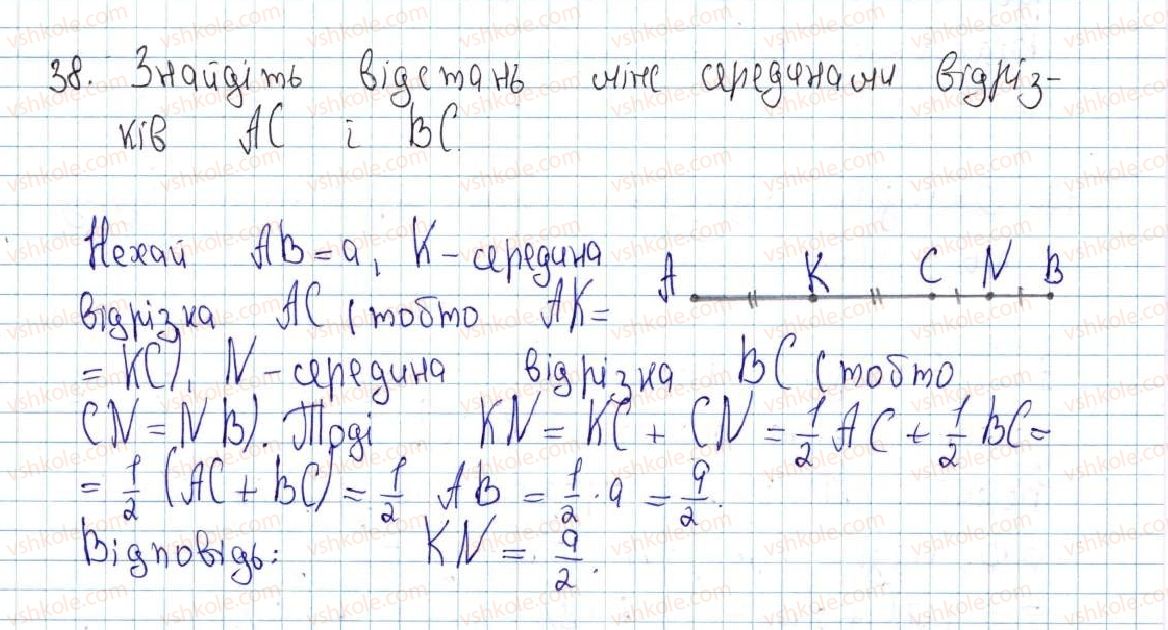 38. Знайдіть відстань між серединами відріз-
ків AC і BC.
Нехай AB = a, K – середина
A K C N B
відрізка AC (тобто AK =
= KC), N – середина відрізка BC (тобто
CN = NB). Тоді KN = KC + CN = 1/2 AC + 1/2 BC =
= 1/2 (AC + BC) = 1/2 AB = 1/2 · a = a/2.
Відповідь: KN = a/2.